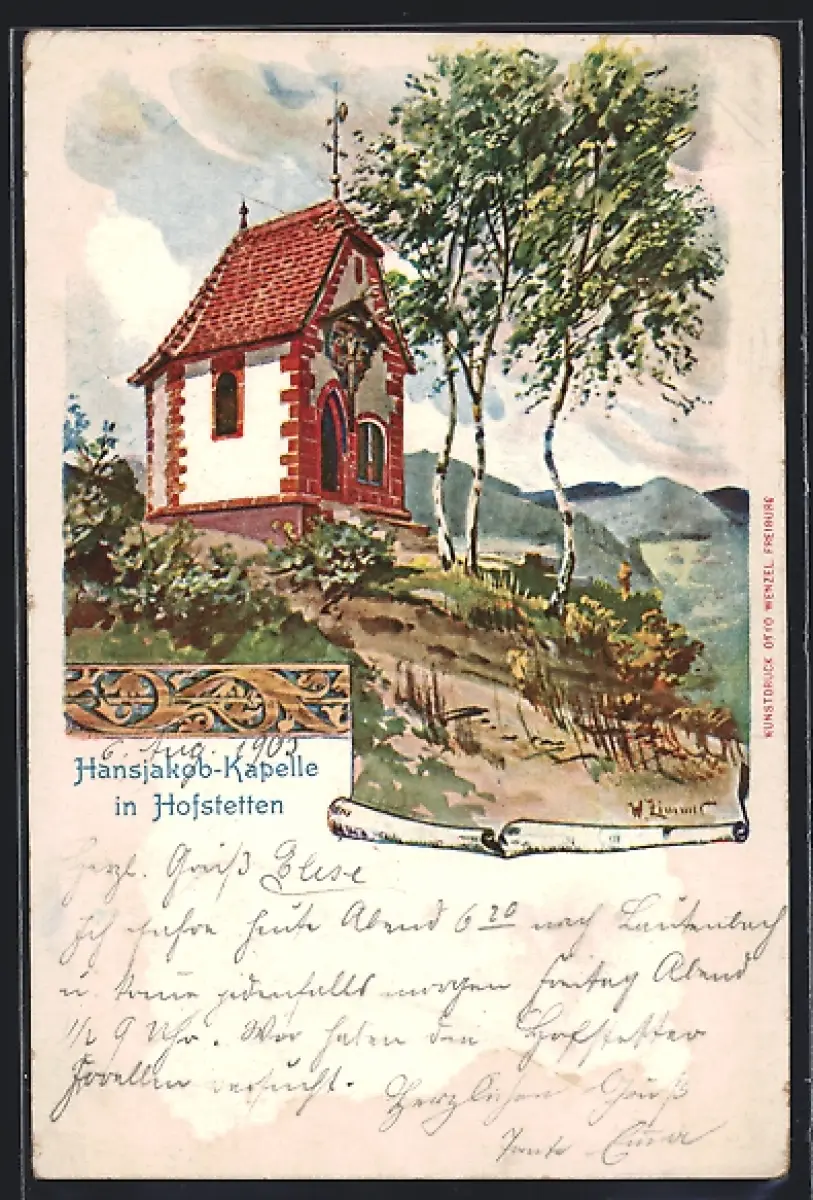 6. Aug. 1903
Hansjakob-Kapelle
in Hofstetten
W. Zimmer
KUNSTDRUCK OTTO WENZEL, FREIBURG
Herzl. Gruß Elise
Ich fahre heute Abend 6 20 nach Lautenbach
u. komme jedenfalls morgen Freitag Abend
1/2 9 Uhr. Wir haben die Hofstetter
Forellen versucht.
Herzlichen Gruß
Tante Emma